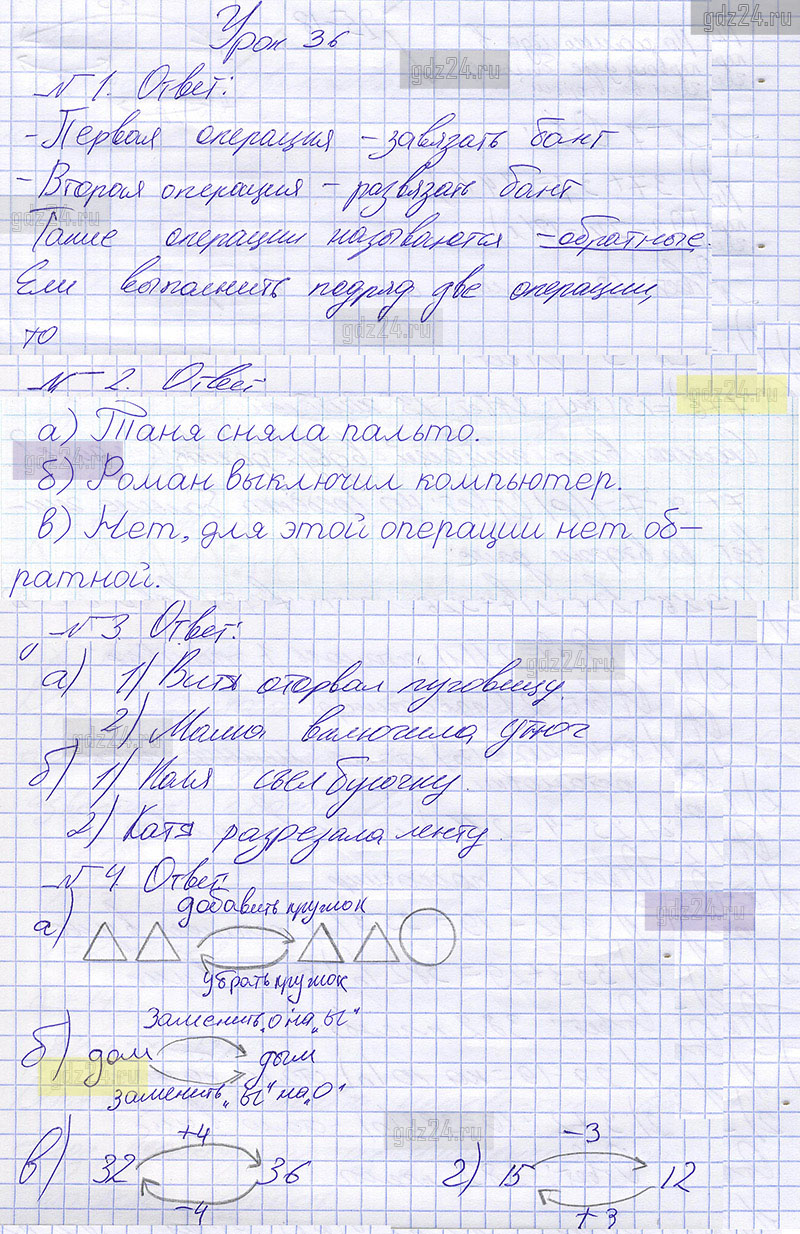 Урок 36
gdz24.ru
gdz24.ru
№ 1. Ответ:
- Первая операция - завязать бант
- Вторая операция - развязать бант
gdz24.ru
Такие операции называются - обратные.
Если выполнить подряд две операции,
то
gdz24.ru
№ 2. Ответ:
gdz24.ru
а) Таня сняла пальто.
gdz24.ru
б) Роман выключил компьютер.
в) Нет, для этой операции нет об-
ратной.
№ 3. Ответ:
gdz24.ru
а) 1) Витя оторвал пуговицу.
2) Мама включила утюг
gdz24.ru
б) 1) Коля съел булочку.
2) Катя разрезала ленту.
№ 4. Ответ:
добавить кружок
gdz24.ru
а)
убрать кружок
Заменить „о" на „ы"
б) дом дым
gdz24.ru
заменить „ы" на „о"
gdz24.ru
+4 -3
в) 32 36 г) 15 12
-4 +3